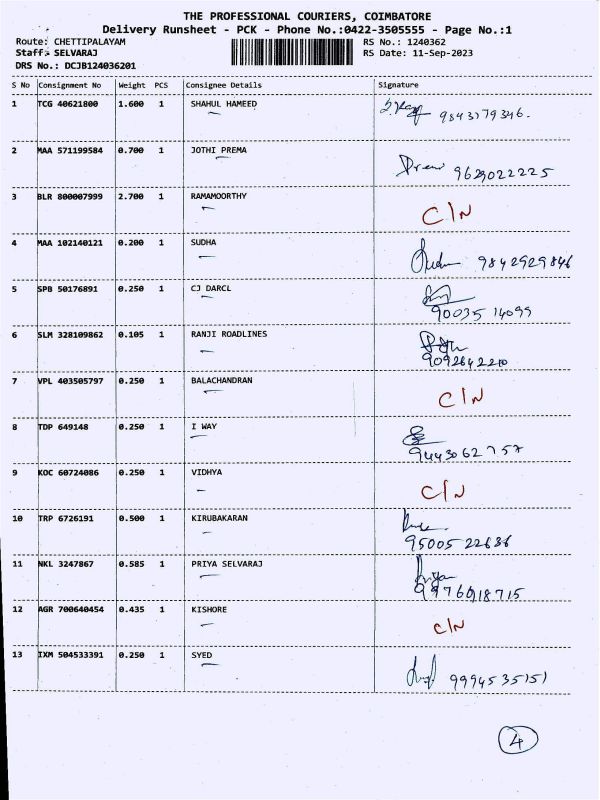 THE PROFESSIONAL COURIERS, COIMBATORE
Delivery Runsheet - PCK - Phone No.:0422-3505555 - Page No.:1
Route: CHETTIPALAYAM RS No.: 1240362
Staff: SELVARAJ RS Date: 11-Sep-2023
DRS No.: DCJB124036201
S No Consignment No Weight PCS Consignee Details Signature
1 TCG 40621800 1.600 1 SHAHUL HAMEED 9843179346.
2 MAA 571199584 0.700 1 JOTHI PREMA 9629022225
3 BLR 800007999 2.700 1 RAMAMOORTHY C/N
4 MAA 102140121 0.200 1 SUDHA 9842929846
5 SPB 50176891 0.250 1 CJ DARCL 90035 14099
6 SLM 328109862 0.105 1 RANJI ROADLINES 9092642210
7 VPL 403505797 0.250 1 BALACHANDRAN C/N
8 TDP 649148 0.250 1 I WAY 9443062757
9 KOC 60724086 0.250 1 VIDHYA C/N
10 TRP 6726191 0.500 1 KIRUBAKARAN 95005 22636
11 NKL 3247867 0.585 1 PRIYA SELVARAJ Priya 9976918715
12 AGR 700640454 0.435 1 KISHORE C/N
13 IXM 504533391 0.250 1 SYED 9994535151
4